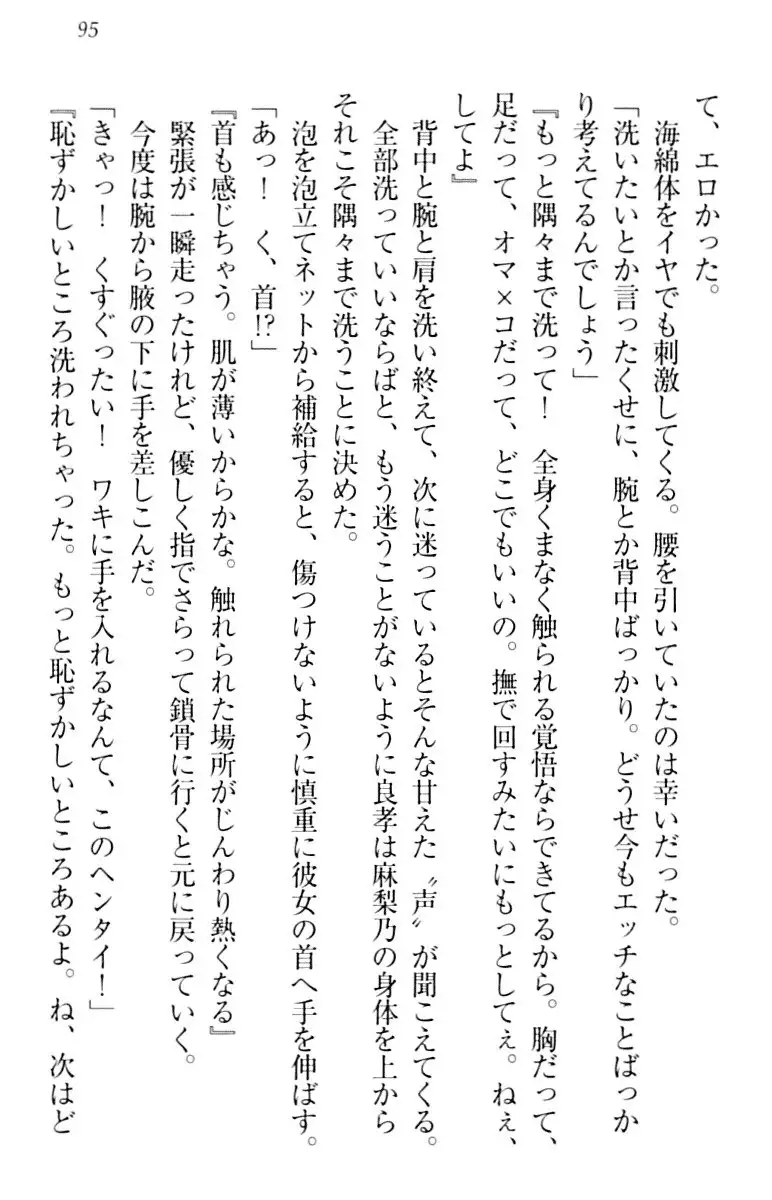 95
て、エロかった。
海綿体をイヤでも刺激してくる。腰を引いていたのは幸いだった。
「洗いたいとか言ったくせに、腕とか背中ばっかり。どうせ今もエッチなことばっか
り考えてるんでしょう」
『もっと隅々まで洗って！　全身くまなく触られる覚悟ならできてるから。胸だって、
足だって、オマ×コだって、どこでもいいの。撫で回すみたいにもっとしてぇ。ねぇ、
してよ』
背中と腕と肩を洗い終えて、次に迷っているとそんな甘えた〝声〟が聞こえてくる。
全部洗っていいならばと、もう迷うことがないように良孝は麻梨乃の身体を上から
それこそ隅々まで洗うことに決めた。
泡を泡立てネットから補給すると、傷つけないように慎重に彼女の首へ手を伸ばす。
「あっ！　く、首!?」
『首も感じちゃう。肌が薄いからかな。触れられた場所がじんわり熱くなる』
緊張が一瞬走ったけれど、優しく指でさらって鎖骨に行くと元に戻っていく。
今度は腕から腋の下に手を差しこんだ。
「きゃっ！　くすぐったい！　ワキに手を入れるなんて、このヘンタイ！」
『恥ずかしいところ洗われちゃった。もっと恥ずかしいところあるよ。ね、次はど